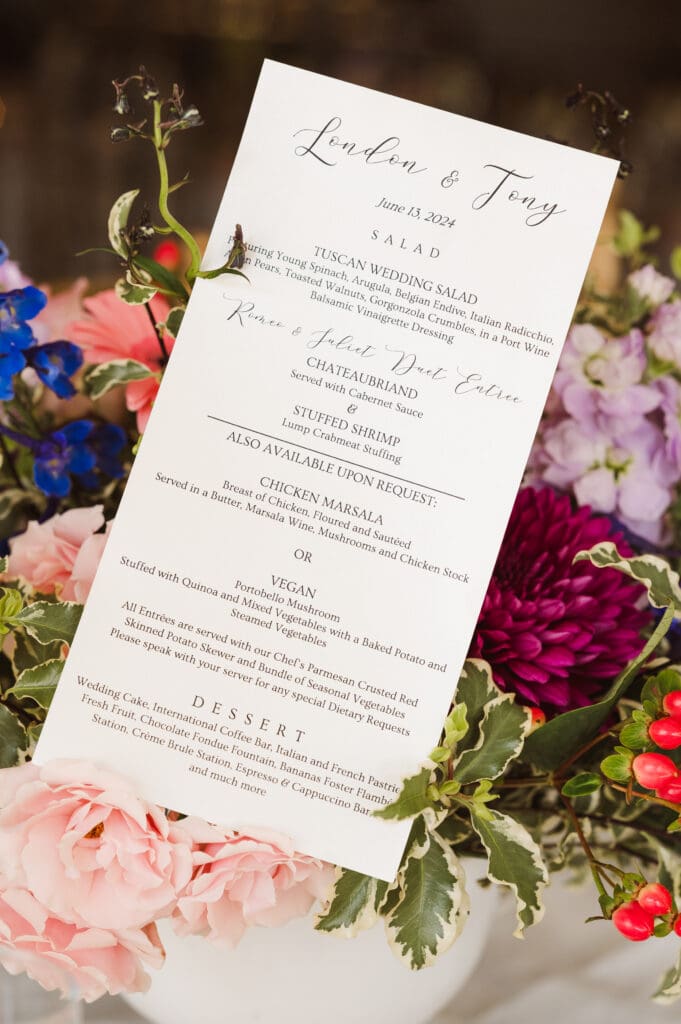 London & Tony
June 13, 2024
SALAD
TUSCAN WEDDING SALAD
Young Spinach, Arugula, Belgian Endive, Italian Radicchio,
Pears, Toasted Walnuts, Gorgonzola Crumbles, in a Port Wine
Balsamic Vinaigrette Dressing
Romeo & Juliet Duet Entree
CHATEAUBRIAND
Served with Cabernet Sauce
&
STUFFED SHRIMP
Lump Crabmeat Stuffing
ALSO AVAILABLE UPON REQUEST:
CHICKEN MARSALA
Breast of Chicken, Floured and Sautéed
Served in a Butter, Marsala Wine, Mushrooms and Chicken Stock
OR
VEGAN
Portobello Mushroom
Stuffed with Quinoa and Mixed Vegetables with a Baked Potato and
Steamed Vegetables
All Entrées are served with our Chef's Parmesan Crusted Red
Skinned Potato Skewer and Bundle of Seasonal Vegetables
Please speak with your server for any special Dietary Requests
DESSERT
Wedding Cake, International Coffee Bar, Italian and French Pastrie
Fresh Fruit, Chocolate Fondue Fountain, Bananas Foster Flambé
Station, Crème Brule Station, Espresso & Cappuccino Bar
and much more